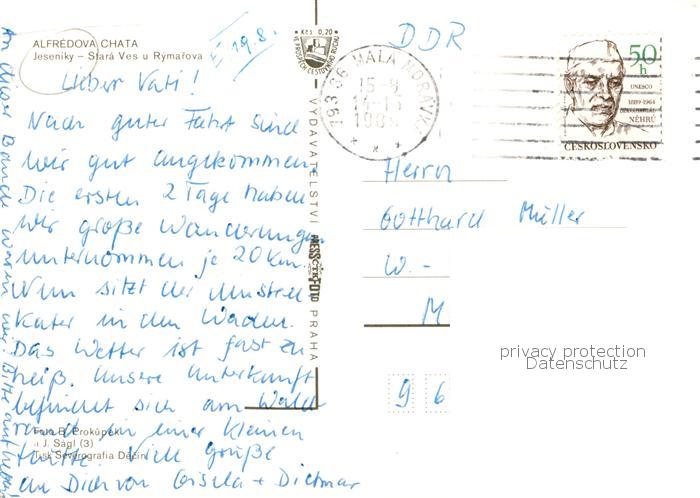 ALFRÉDOVA CHATA
Jeseníky – Stará Ves u Rýmařova
E. 19.8.
Kčs 0,20
VE PROSPĚCH CESTOVNÍHO RUCHU
Lieber Vati!
Nach guter Fahrt sind
wir gut angekommen.
Die ersten 2 Tage haben
wir große Wanderungen
unternommen je 20 km.
Nun sitzt der
Kater in den Waden.
Das Wetter ist fast zu
heiß. Unsere Unterkunft
befindet sich am Wald
rand in einer kleinen
Hütte. Viele Grüße
an Dich von Gisela + Dietmar
An dieser Baude waren wir. Bitte aufheben
Foto B. Prokůpek
a J. Ságl (3)
Tisk Severografia Děčín
VYDAVATELSTVÍ PRESSFOTO PRAHA
793 36 MALÁ MORÁVKA
DDR
50 h
UNESCO
1889-1964
NÉHRÚ
ČESKOSLOVENSKO
Herrn
Gotthard Müller
W. -
M
9 6
privacy protection
Datenschutz